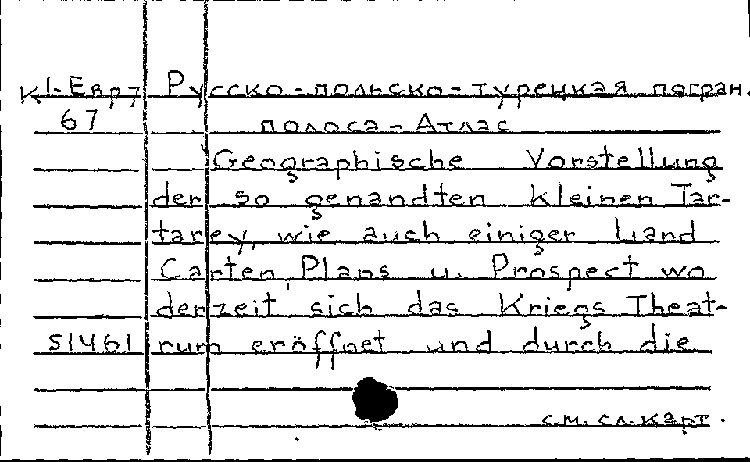 К1-Евр7 Русско-польско-турецкая погран.
67 полоса-Атлас
Geographische Vorstellung
der so genandten kleinen Tar-
tarey, wie auch einiger Land
Carten, Plans u. Prospect wo
derzeit sich das Kriegs Theat-
51461 rum eröffnet und durch die
см. сл. карт.